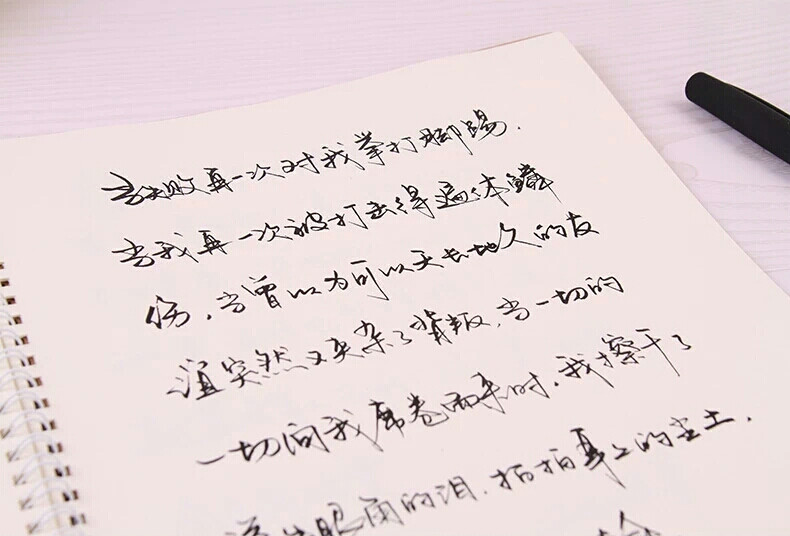 当失败再一次对我拳打脚踢，
当我再一次被打击得遍体鳞
伤，当曾以为可以天长地久的友
谊突然又夹杂了背叛，当一切的
一切向我席卷而来时，我擦干了
流出眼角的泪，拍拍身上的尘土，